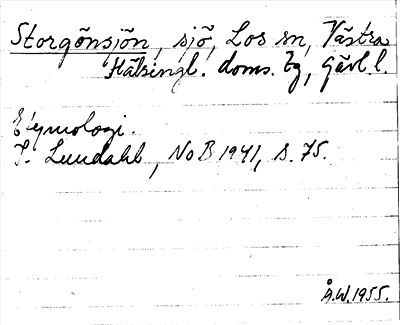 Storgõnsjõn, sjõ, Los sn, Västra
Hälsingl. doms. tg, Gävl. l.
Etymologi.
I. Lundahl, NoB 1941, s. 75.
Å.W. 1955.